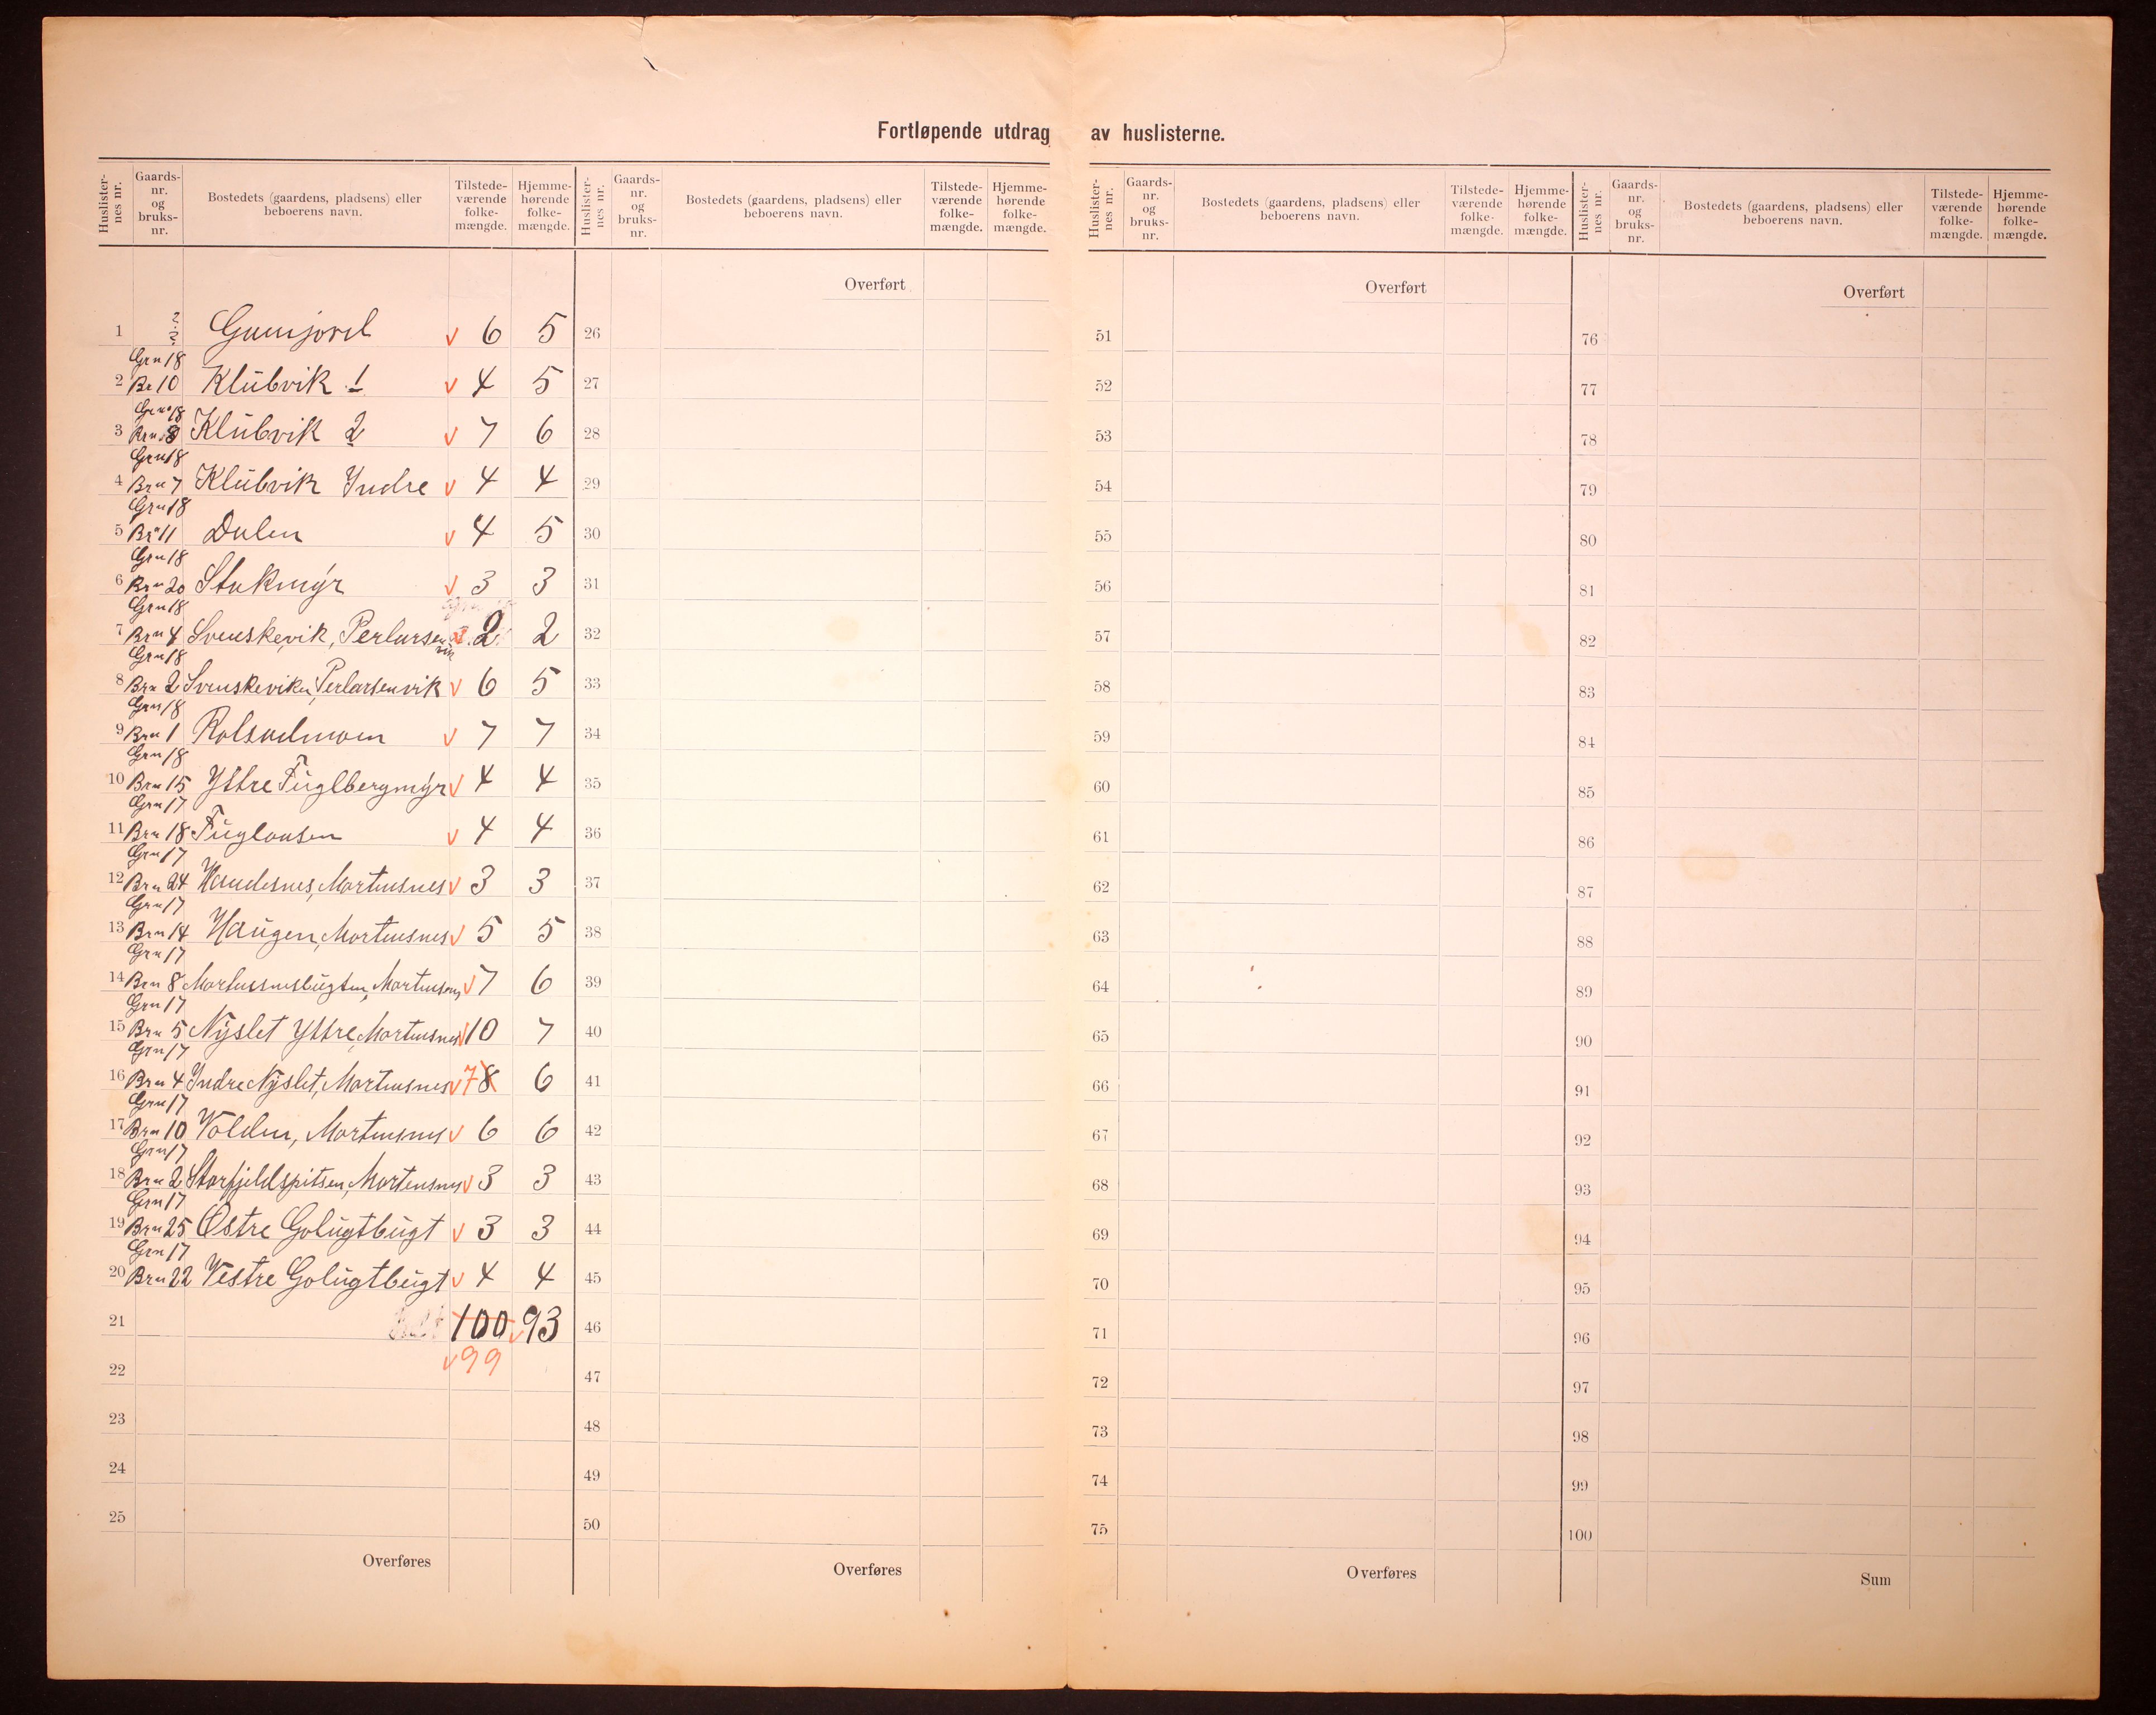 Fortløpende utdrag av huslisterne.
Huslister-nes nr. Gaards-nr. og bruks-nr. Bostedets (gaardens, pladsens) eller beboerens navn. Tilstede-værende folke-mængde. Hjemme-hørende folke-mængde.
1 ? ? Gumjord v 6 5
Grn 18
2 Br 10 Klübvik 1 v 4 5
Grn 18
3 Brn 8 Klübvik 2 v 7 6
Grn 18
4 Brn 7 Klübvik Indre v 4 4
Grn 18
5 Brn 11 Dalen v 4 5
Grn 18
6 Brn 20 Stakmyr v 3 3
Grn 18
7 Brn 4 Svenskevik, Perlarsen vik v 2 2
Grn 18
8 Brn 2 Svenskeviken, Perlarsenvik v 6 5
Grn 18
9 Brn 1 Rolsadmoen v 7 7
Grn 18
10 Brn 15 Ystre Füglbergmyr v 4 4
Grn 17
11 Brn 18 Füglaasen v 4 4
Grn 17
12 Brn 24 Mortensnes v 3 3
Grn 17
13 Brn 14 Haugen, Mortensnes v 5 5
Grn 17
14 Brn 8 Mortensnesbügten, Mortensnes v 7 6
Grn 17
15 Brn 5 Nyslet Ystre, Mortensnes v 10 7
Grn 17
16 Brn 4 Indre Nyslet, Mortensnes v 7 8 6
Grn 17
17 Brn 10 Volden, Mortensnes v 6 6
Grn 17
18 Brn 2 Storfjeldspitsen, Mortensnes v 3 3
Grn 17
19 Brn 25 Østre Golügtbügt v 3 3
Grn 17
20 Brn 22 Vestre Golügtbügt v 4 4
21 100 v 93
v 99
22
23
24
25
Overføres
Huslister-nes nr. Gaards-nr. og bruks-nr. Bostedets (gaardens, pladsens) eller beboerens navn. Tilstede-værende folke-mængde. Hjemme-hørende folke-mængde.
Overført
26
27
28
29
30
31
32
33
34
35
36
37
38
39
40
41
42
43
44
45
46
47
48
49
50
Overføres
Huslister-nes nr. Gaards-nr. og bruks-nr. Bostedets (gaardens, pladsens) eller beboerens navn. Tilstede-værende folke-mængde. Hjemme-hørende folke-mængde.
Overført
51
52
53
54
55
56
57
58
59
60
61
62
63
64
65
66
67
68
69
70
71
72
73
74
75
Overføres
Huslister-nes nr. Gaards-nr. og bruks-nr. Bostedets (gaardens, pladsens) eller beboerens navn. Tilstede-værende folke-mængde. Hjemme-hørende folke-mængde.
Overført
76
77
78
79
80
81
82
83
84
85
86
87
88
89
90
91
92
93
94
95
96
97
98
99
100
Sum